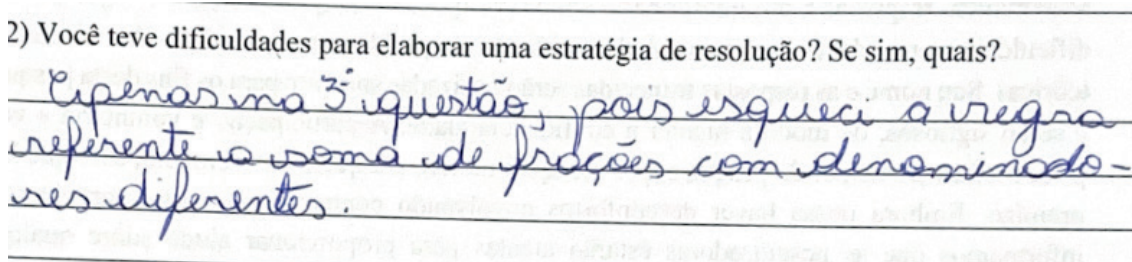 2) Você teve dificuldades para elaborar uma estratégia de resolução? Se sim, quais?
Apenas na 3ª questão, pois esqueci a regra
referente a soma de frações com denominado-
res diferentes.